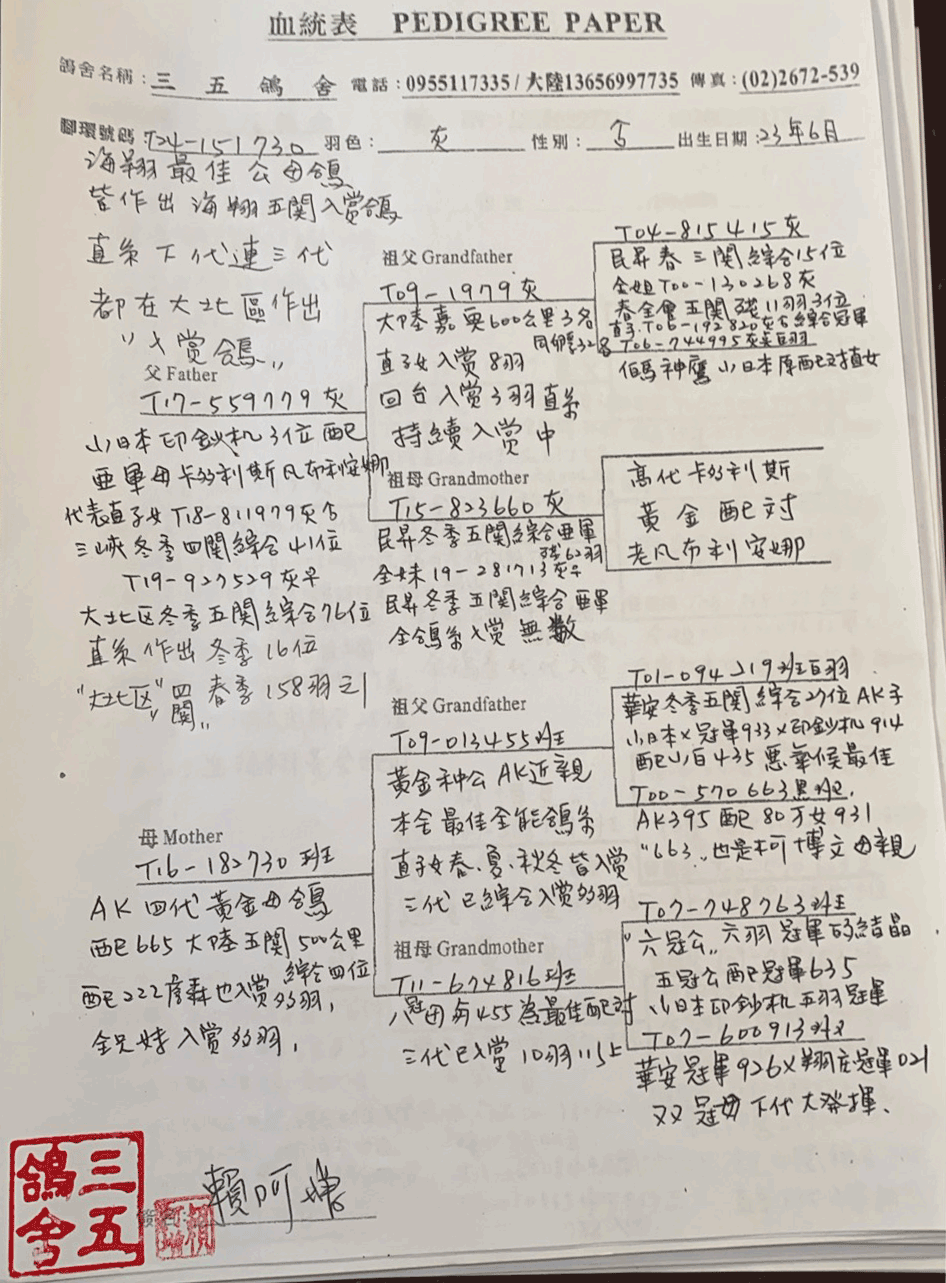 血統表 PEDIGREE PAPER
鴿舍名稱：三五鴿舍 電話：0955117335/大陸13656997735 傳真：(02)2672-539
腳環號碼：T24-151730 羽色：灰 性別：合 出生日期：23年6月
海翔最佳公母鴿
皆作出海翔五関入賞鴿
直系下代連三代
都在大北區作出
"入賞鴿"
父 Father
T17-559779灰
小日本印鈔机3位配
亜軍母卡多利斯凡布利安娜
代表直子女T18-811979灰合
三峽冬季四関綜合41位
T19-927529灰平
大北区冬季五関綜合76位
直系作出冬季16位
"大北区"四関" 春季158羽剩1
祖父 Grandfather
T09-1979灰
大陸嘉奥600公里3名
直子女入賞8羽
回台入賞3羽直系
持續入賞中
T04-815415灰
民昇春三関綜合15位
全姐T00-130268灰
春全會五関残11羽3位
直子.T06-192820灰合綜合冠軍
T06-744995灰
伯馬神鷹小日本原配対直女
祖母 Grandmother
T15-823660灰
民昇冬季五関綜合亜軍
残62羽
全妹19-281713灰平
民昇冬季五関綜合亜軍
全鴿系入賞無数
高代卡多利斯
黃金配対
老凡布利安娜
母 Mother
T16-182730班
AK四代黃金母鴿
配665大陸五関500公里
綜合四位
配222彦森也入賞多羽,
全兄姊入賞多羽,
祖父 Grandfather
T09-013455班
黃金种公AK近親
本舍最佳全能鴿系
直子女春、夏、秋冬皆入賞
三代已綜合入賞多羽
T01-094219班白羽
華安冬季五関綜合27位AK子
小日本×冠軍933×印鈔机914
配小白435惡氣候最佳
T00-570663黑班.
AK395配80万女931
"663"也是柯博文母親
祖母 Grandmother
T11-674816班
八冠用与455為最佳配対
三代已入賞10羽以上
T07-748763班
"六冠公"六羽冠軍的結晶
五冠公配冠軍635
小日本印鈔机五羽冠軍
T07-600913班
華安冠軍926×翔庄冠軍021
双冠母下代大発揮、
三五鴿舍